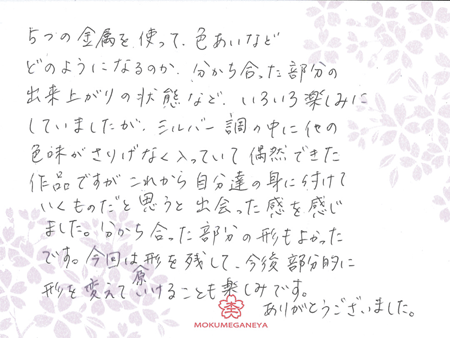 5つの金属を使って、色あいなど
どのようになるのか、分かち合った部分の
出来上がりの状態など、いろいろ楽しみに
していましたが、シルバー調の中に他の
色味がさりげなく入っていて偶然できた
作品ですがこれから自分達の身に付けて
いくものだと思うと出会った感を感じ
ました。分かち合った部分の形もよかった
です。今回は形を残して、今後部分的に
形を変えて いけることも楽しみです。
ありがとうございました。
MOKUMEGANEYA